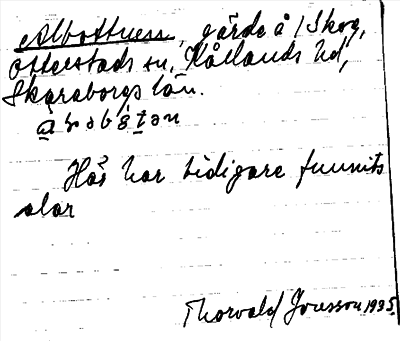 Albotturen, gärde å 1 Skog,
Otterstads sn, Kållands hd,
Skaraborgs län.
Här har tidigare funnits
alar
Thorvald Jonsson 1935